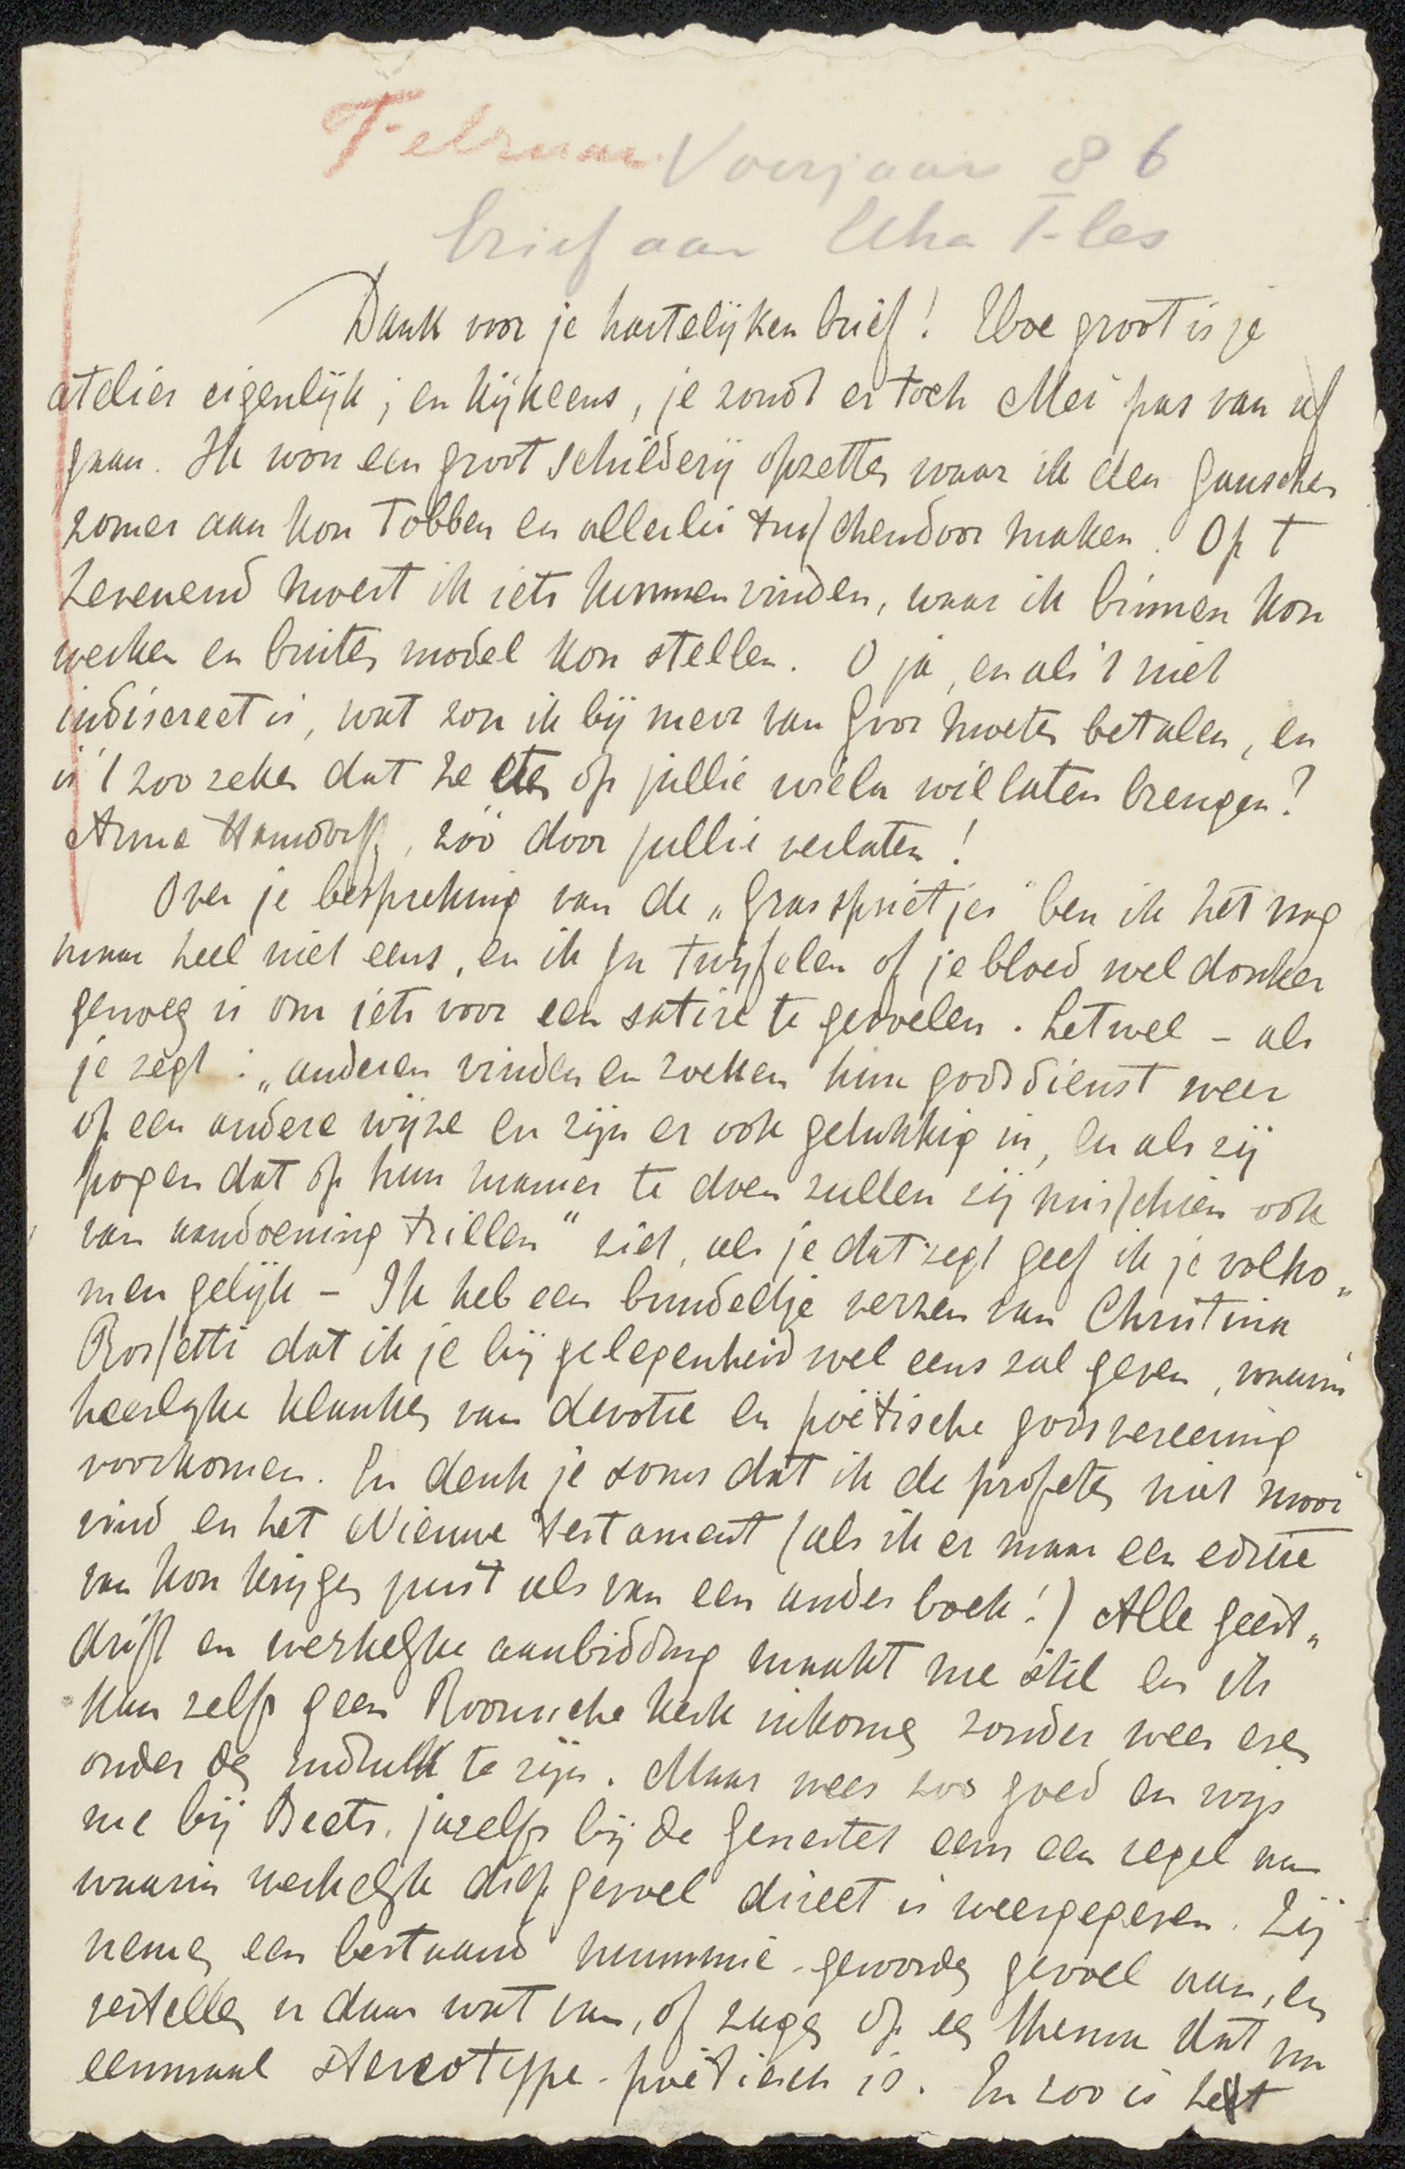 Februar. Voorjaar 86
brief aan Etha Fles
Dank voor je hartelijken brief! Hoe groot is je
atelier eigenlijk; en kijk eens, je zoudt er toch Mei pas van af
gaan. Ik wou een groot schilderij opzetten waar ik den ganschen
zomer aan kon tobben en allerlei tusschendoor maken. Op t
Zevenend moest ik iets kunnen vinden, waar ik binnen kon
werken en buiten model kon stellen. O ja, en als 't niet
indiscreet is, wat zou ik bij mevr van Goor moeten betalen, en
is 't zoo zeker dat ze eten op jullie wiela wil laten brengen?
Arme Hamdorff, zóó door jullie verlaten!
Over je bespreking van de „Grassprietjes" ben ik het nog
maar heel niet eens, en ik ga twijfelen of je bloed wel donker
genoeg is om iets voor een satire te gevoelen. Let wel – als
je zegt: „anderen vinden en zoeken hun godsdienst weer
op een andere wijze en zijn er ook gelukkig in, en als zij
pogen dat op hun manier te doen zullen zij misschien ook
van aandoening trillen" ziet, als je dat zegt geef ik je volko„
men gelijk – Ik heb een bundeltje verzen van Christina
Rossetti dat ik je bij gelegenheid wel eens zal geven, waarin
heerlijke klanken van devotie en poëtische godsvereering
voorkomen. En denk je soms dat ik de profeten niet mooi
vind en het Nieuwe Testament (als ik er maar een editie
van kon krijgen juist als van een ander boek!) Alle geest„
drift en werkelijke aanbidding maakt me stil en ik
kan zelfs geen Roomsche kerk inkomen zonder weer even
onder den indruk te zijn. Maar wees zoo goed en wijs
me bij Beets, ja zelfs bij de Genestet eens een regel aan
waarin werkelijk diep gevoel direct is weergegeven. Zij
nemen een bestaand mummie-geworden gevoel aan, en
vertellen er daar wat van, of zagen op een thema dat nu
eenmaal stereotype-poëtisch is. En zoo is het